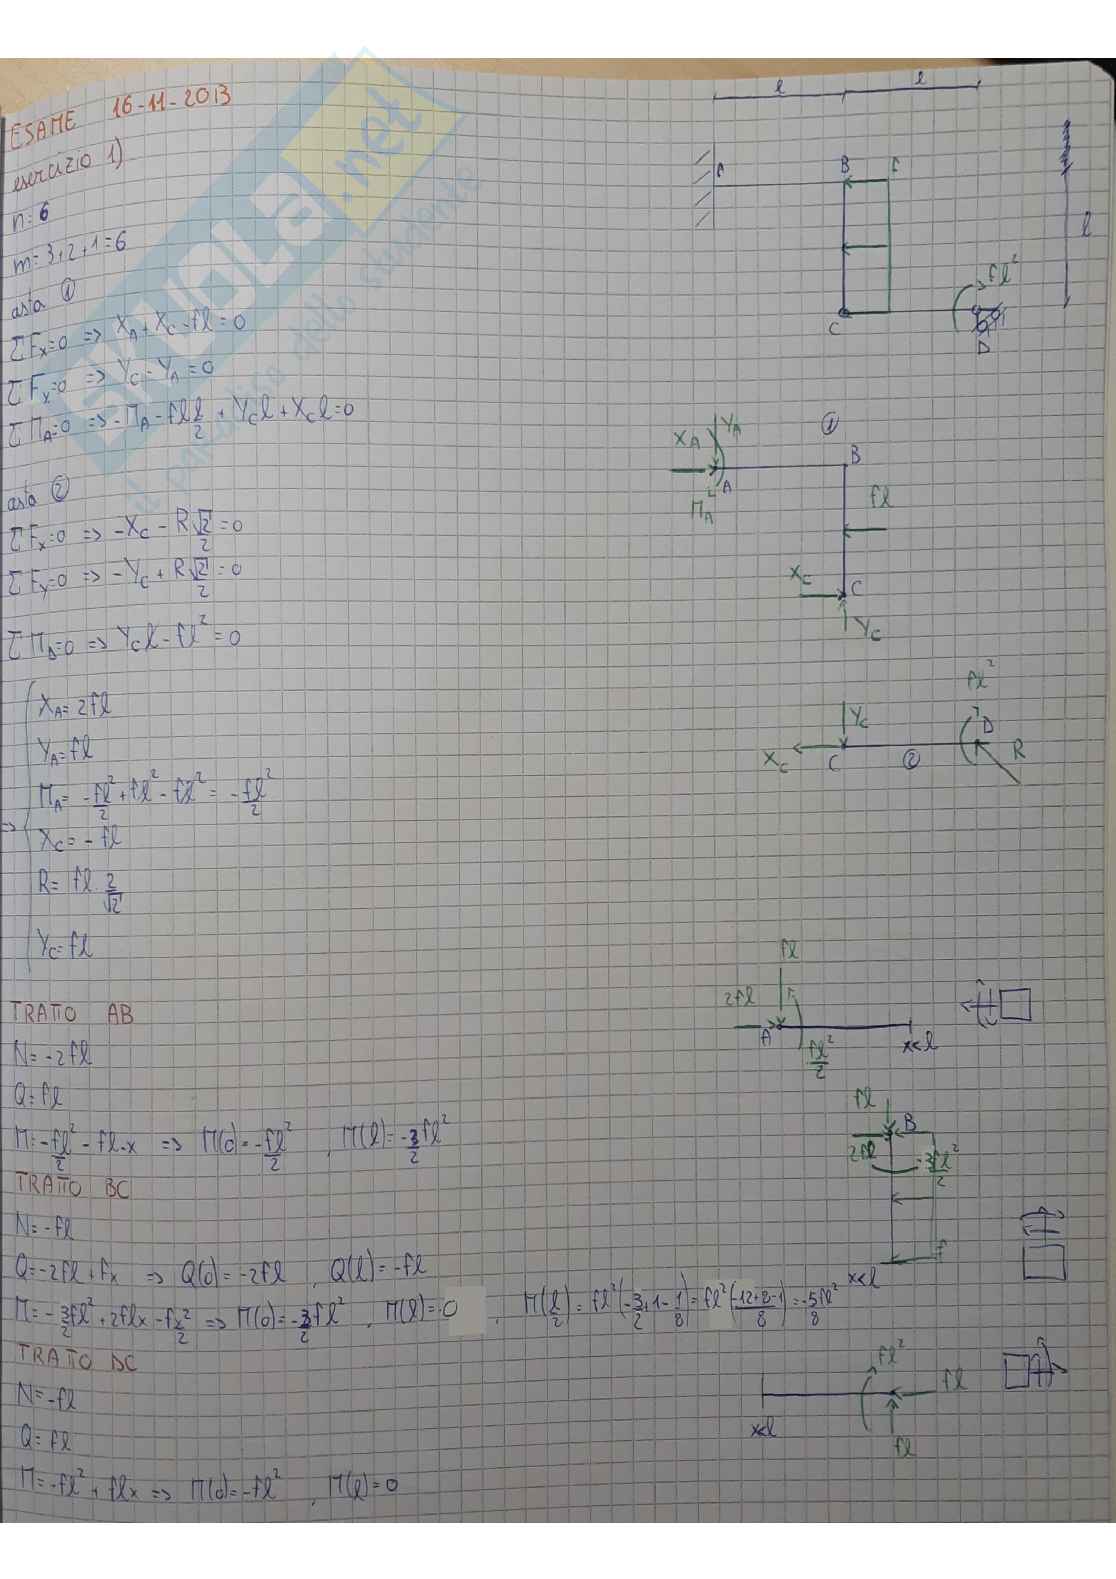 ESAME 16-11-2013
esercizio 1)
n=6
m=3+2+1=6
asta ①
ΣFx=0 => XA+XC-fl=0
ΣFx=0 => YC-YA=0
ΣMA=0 => -MA-fl l/2+YCl+XCl=0
asta ②
ΣFx=0 => -XC-R√2/2=0
ΣFy=0 => -YC+R√2/2=0
ΣMD=0 => YCl-fl²=0
XA=2fl
YA=fl
=> MA=-fl²/2+fl²-fl²=-fl²/2
XC=-fl
R=fl 2/√2
YC=fl
TRATTO AB
N=-2fl
Q=fl
M=-fl²/2-fl·x => M(0)=-fl²/2, M(l)=-3/2fl²
TRATTO BC
N=-fl
Q=-2fl+fx => Q(0)=-2fl, Q(l)=-fl
M=-3/2fl²+2flx-fx²/2 => M(0)=-3/2fl², M(l)=0, M(l/2)=fl²(-3/2+1-1/8)=fl²(-12+8-1/8)=-5/8fl²
TRATTO DC
N=-fl
Q=fl
M=-fl²+flx => M(0)=-fl², M(l)=0
l l
A B f
l
fl²
C D
①
XA YA
A B
MA
fl
XC C
YC
fl²
YC D
XC C ② R
fl
2fl
A x<l
fl²/2
fl
B
2fl -3fl²/2
f
x<l
fl²
fl
x<l
fl
SKUOLA.net
il paradiso dello studente